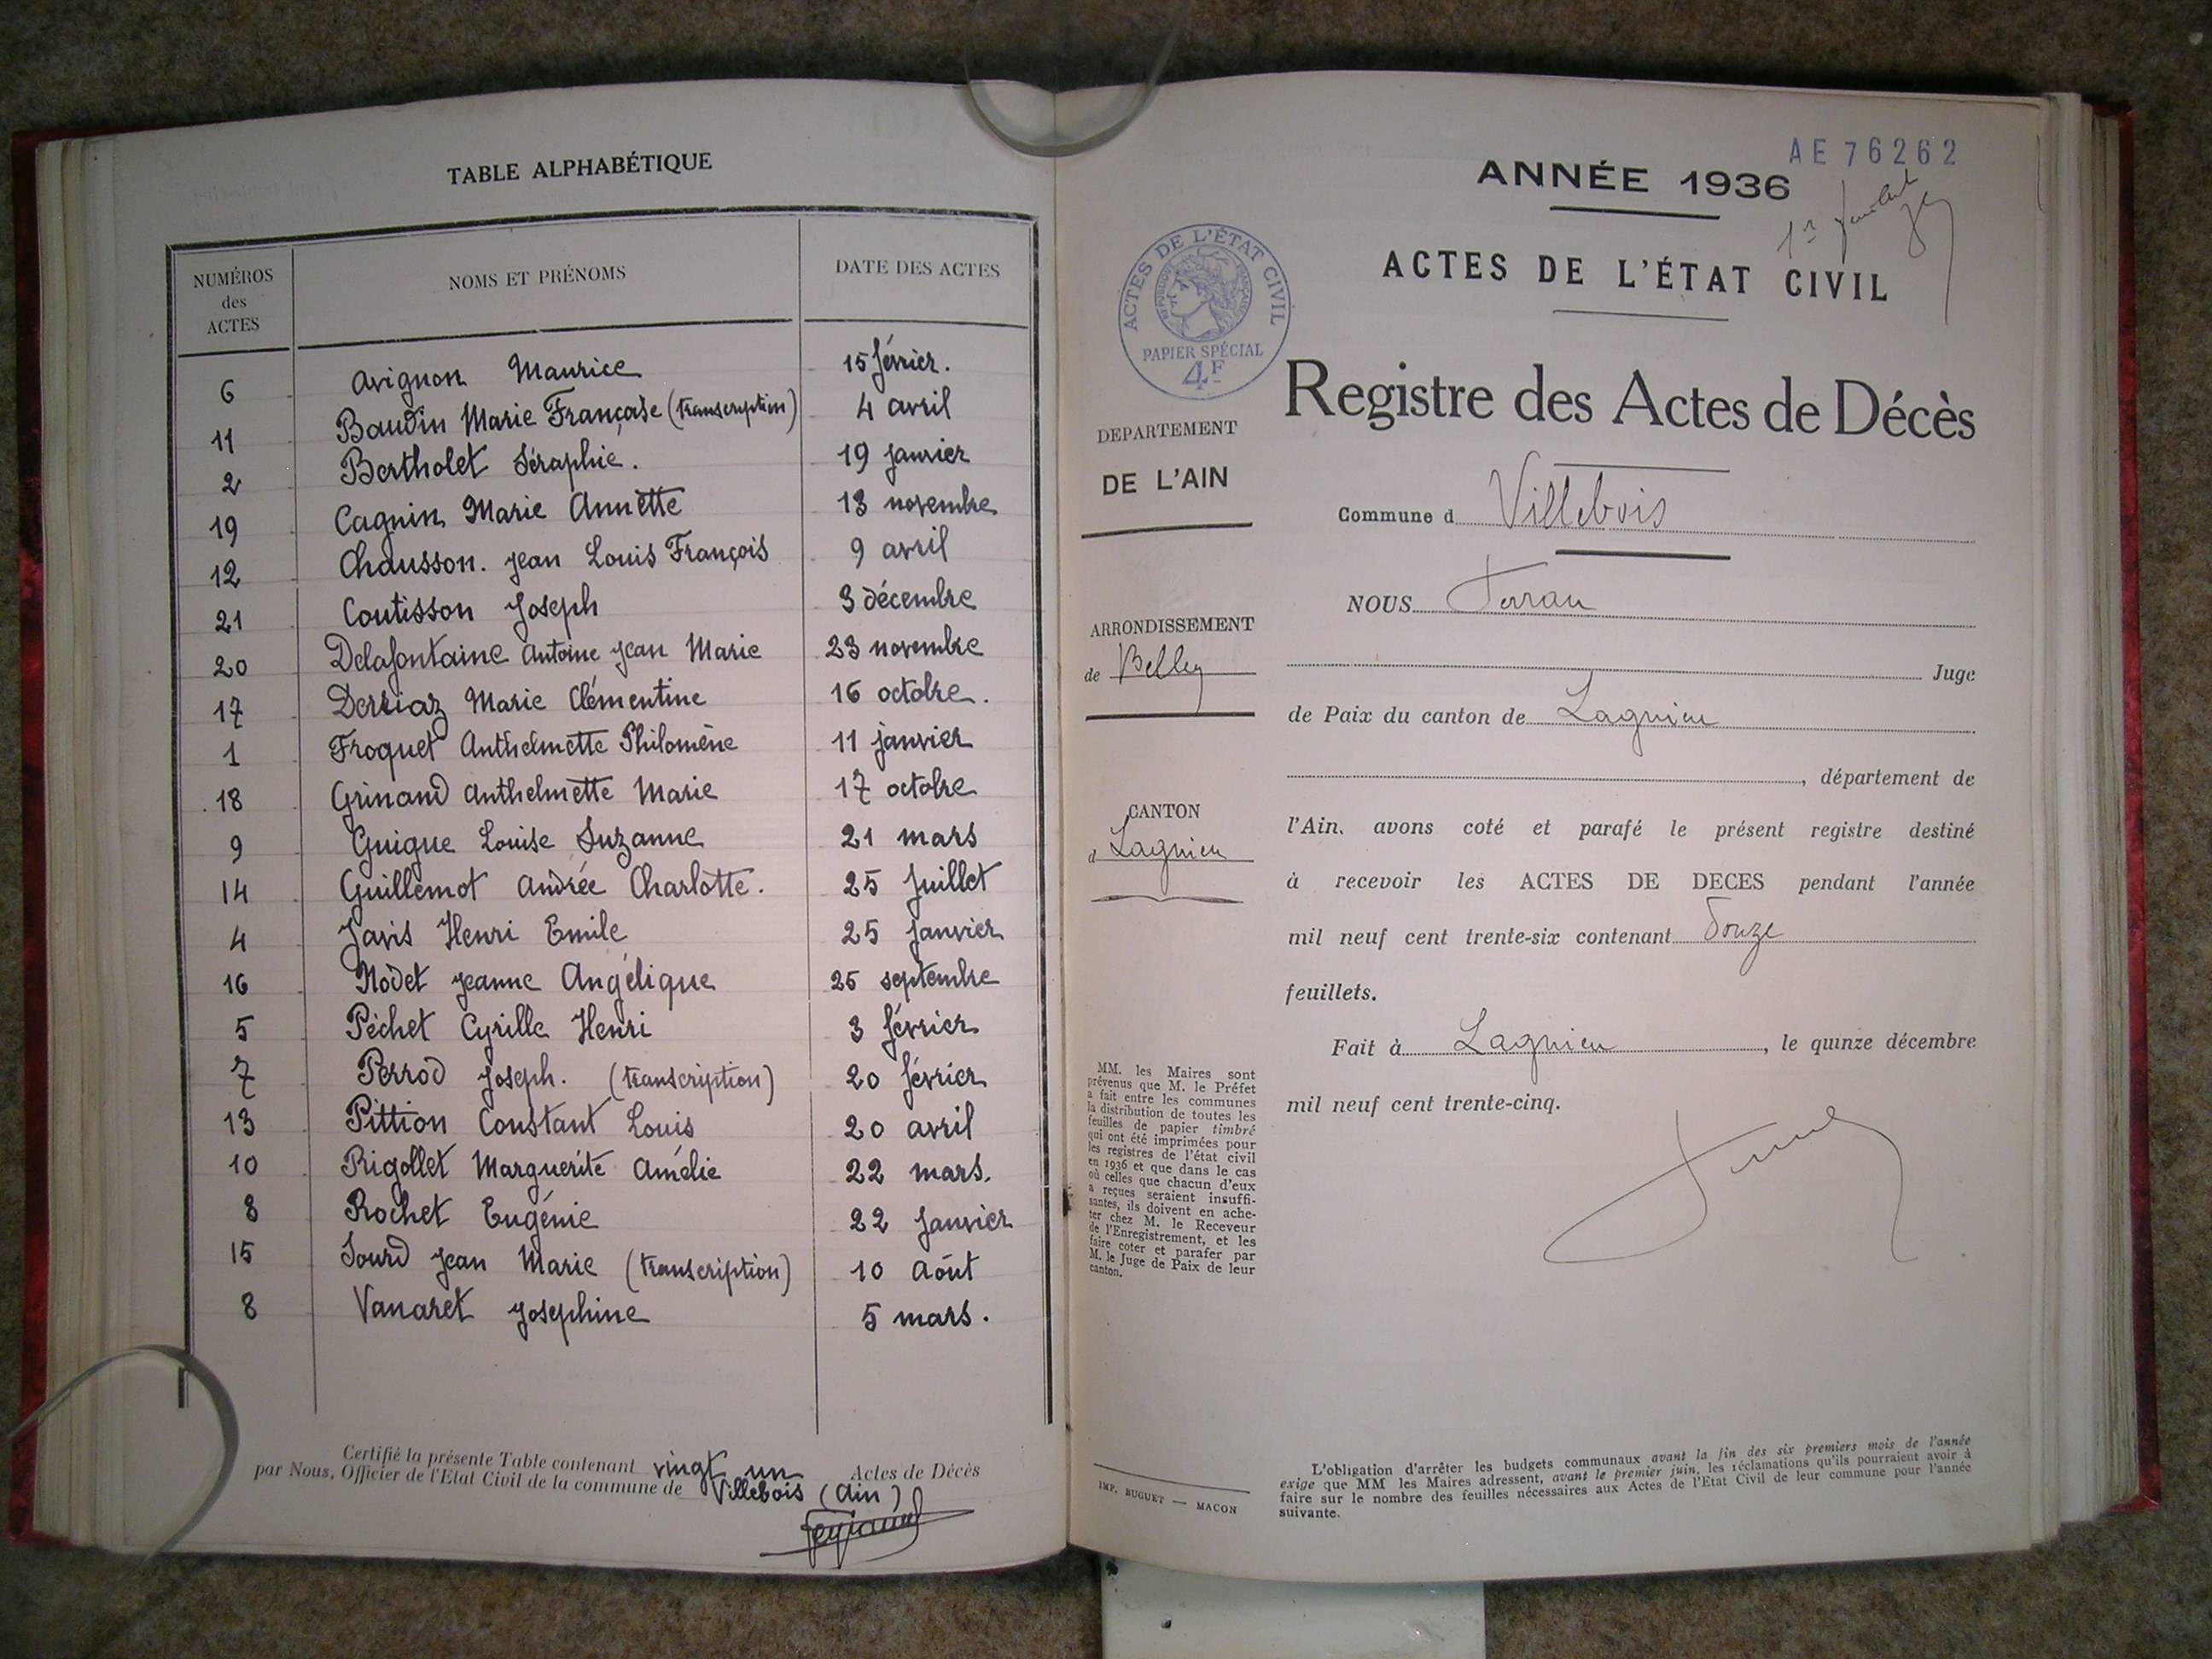 TABLE ALPHABÉTIQUE
NUMÉROS des ACTES NOMS ET PRÉNOMS DATE DES ACTES
6 Avignon Maurice 15 février.
11 Baudin Marie Françoise (transcription) 4 avril
2 Bertholet Séraphie. 19 janvier
19 Cagnin Marie Annette 13 novembre
12 Chausson. Jean Louis François 9 avril
21 Coutisson Joseph 3 décembre
20 Delafontaine Antoine Jean Marie 23 novembre
17 Derriaz Marie Clémentine 16 octobre.
1 Froquet Anthelmette Philomène 11 janvier
18 Grinand Anthelmette Marie 17 octobre
9 Guigue Louise Suzanne 21 mars
14 Guillemot Andrée Charlotte. 25 Juillet
4 Javis Henri Emile 25 Janvier
16 Nodet Jeanne Angélique 25 septembre
5 Péchet Cyrille Henri 3 février
7 Perrod Joseph. (transcription) 20 février
13 Pittion Constant Louis 20 avril
10 Rigollet Marguerite Amélie 22 mars.
8 Rochet Eugénie 22 Janvier
15 Sourd Jean Marie (transcription) 10 Août
8 Vanaret Joséphine 5 mars.
Certifié la présente Table contenant vingt un Actes de Décès
par Nous, Officier de l'Etat Civil de la commune de Villebois (Ain)
AE 76262
ANNÉE 1936
1er feuillet
ACTES DE L'ÉTAT CIVIL
ACTES DE L'ÉTAT CIVIL
RÉPUBLIQUE FRANÇAISE
PAPIER SPÉCIAL
4F
Registre des Actes de Décès
DEPARTEMENT
DE L'AIN
Commune d Villebois
NOUS
ARRONDISSEMENT
de Belley
Juge
de Paix du canton de Lagnieu
, département de
CANTON
d Lagnieu
l'Ain, avons coté et parafé le présent registre destiné
à recevoir les ACTES DE DECES pendant l'année
mil neuf cent trente-six contenant Douze
feuillets.
Fait à Lagnieu, le quinze décembre
mil neuf cent trente-cinq.
MM. les Maires sont
prévenus que M. le Préfet
a fait entre les communes
la distribution de toutes les
feuilles de papier timbré
qui ont été imprimées pour
les registres de l'état civil
en 1936 et que dans le cas
où celles que chacun d'eux
a reçues seraient insuffi-
santes, ils doivent en ache-
ter chez M. le Receveur
de l'Enregistrement, et les
faire coter et parafer par
M. le Juge de Paix de leur
canton.
IMP. BUGUET — MACON
L'obligation d'arrêter les budgets communaux avant la fin des six premiers mois de l'année
exige que MM les Maires adressent, avant le premier juin, les réclamations qu'ils pourraient avoir à
faire sur le nombre des feuilles nécessaires aux Actes de l'Etat Civil de leur commune pour l'année
suivante.